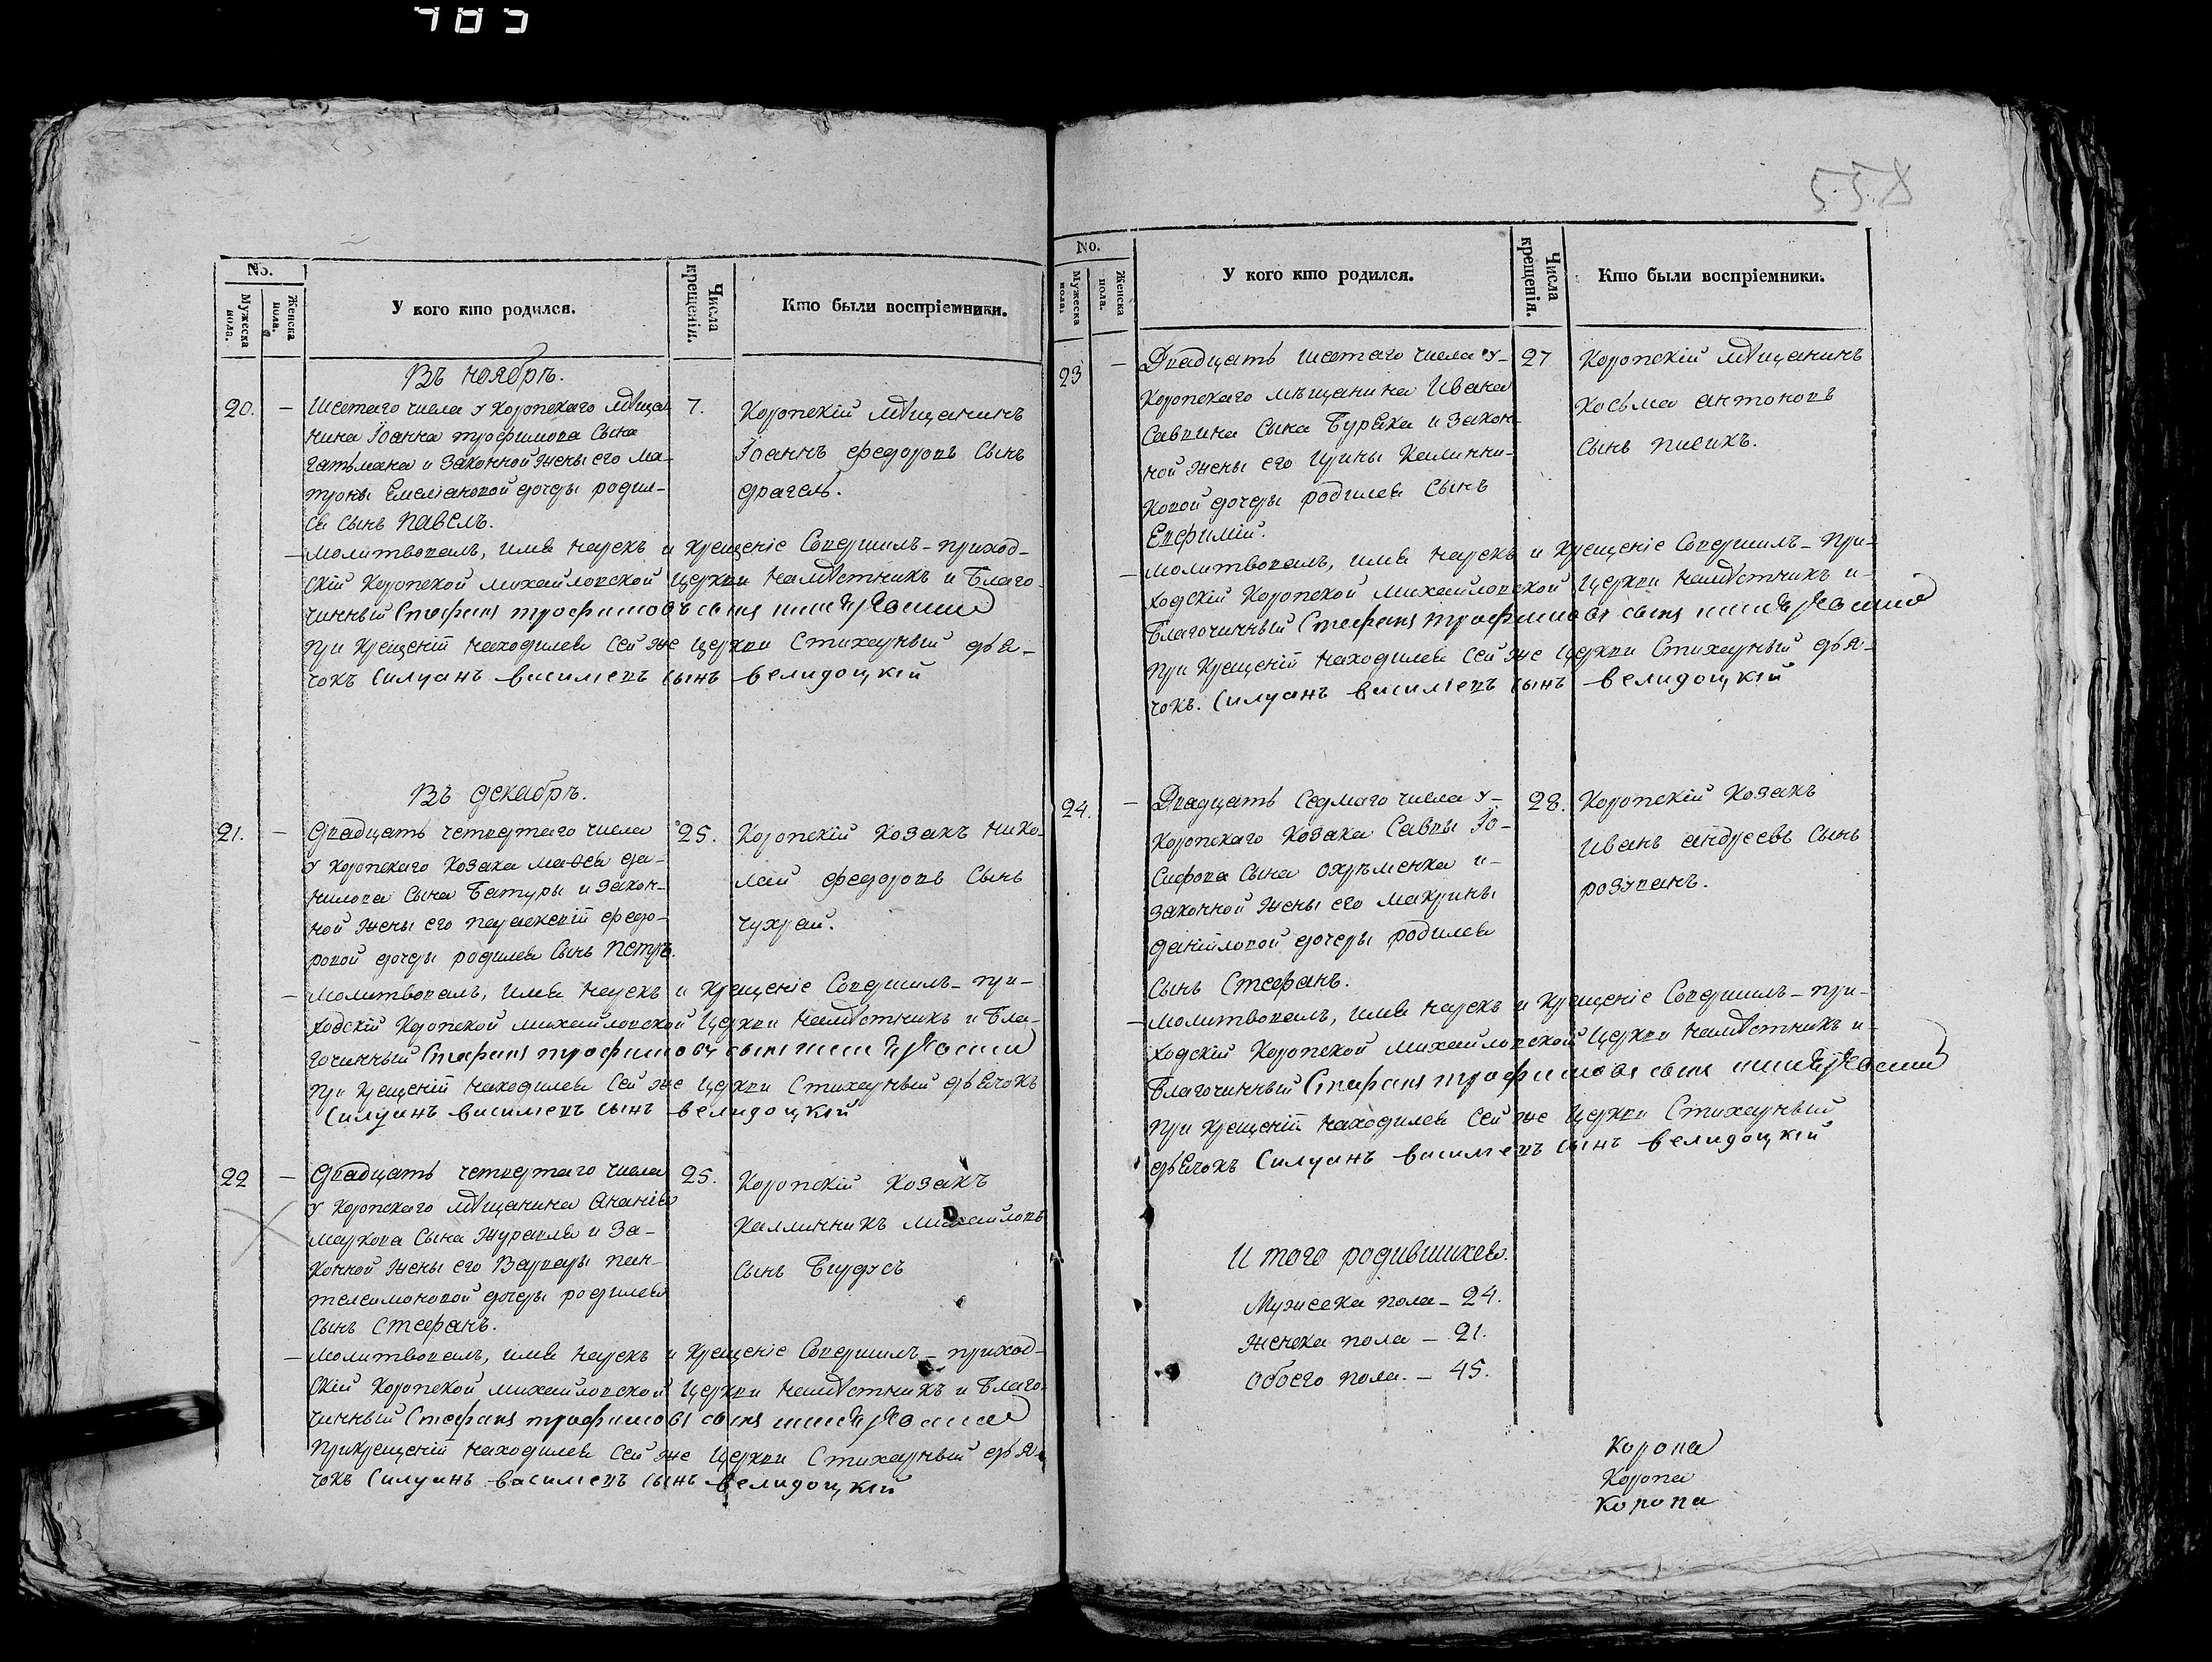 558
No.
Мужеска пола.
Женска пола.
У кого кто родился.
Числа крещенія.
Кто были воспріемники.
Въ ноябрѣ.
20. — Шестаго числа у Коропскаго мѣща-
нина Іоанна трофимова сына
гатьмана и законной жены его ма-
троны Емеліановой дочеры родил-
ся сынъ павелъ.
7.
Коропскій мѣщанинъ
Іоаннъ федоровъ сынъ
драгель.
— молитвовалъ, имя нарекъ и крещеніе совершилъ - приход-
скій Коропской михайловской церкви намѣстникъ и благо-
чинный Стефанъ трофимовъ сынъ
при крещеніи находился сей же церкви стихарный дья-
чокъ Силуанъ василіевъ сынъ велидоцкій
Въ декабрѣ.
21. — Двадцать четвертаго числа
у Коропскаго козака мавсѣя да-
нилова сына батуры и закон-
ной жены его параскевіи федо-
ровой дочеры родился сынъ петръ.
25.
Коропскій козакъ нико-
лай федоровъ сынъ
чухрай.
— молитвовалъ, имя нарекъ и крещеніе совершилъ - при-
ходскій Коропской михайловской церкви намѣстникъ и бла-
гочинный Стефанъ трофимовъ сынъ
при крещеніи находился сей же церкви стихарный дьячокъ
Силуанъ василіевъ сынъ велидоцкій
22 — Двадцать четвертаго числа
у Коропскаго мѣщанина Ананія
маркова сына журавля и за-
конной жены его Варвары пан-
телеимоновой дочеры родился
сынъ стефанъ.
25.
Коропскій козакъ
каллинникъ михайловъ
сынъ бирусъ
— молитвовалъ, имя нарекъ и крещеніе совершилъ - приход-
скій Коропской михайловской церкви намѣстникъ и благо-
чинный Стефанъ трофимовъ сынъ
при крещеніи находился сей же церкви стихарный дья-
чокъ Силуанъ василіевъ сынъ велидоцкій
No.
Мужеска пола.
Женска пола.
У кого кто родился.
Числа крещенія.
Кто были воспріемники.
23 — Двадцать шестаго числа у-
Коропскаго мѣщанина Ивана
Саввина сына бурака и закон-
ной жены его Ирины Калинни-
ковой дочеры родился сынъ
Евфимій.
27
Коропскій мѣщанинъ
косьма антоновъ
сынъ писикъ.
— молитвовалъ, имя нарекъ и крещеніе совершилъ - при-
ходскій Коропской михайловской церкви намѣстникъ и-
благочинный Стефанъ трофимовъ сынъ
при крещеніи находился сей же церкви стихарный дья-
чокъ. Силуанъ василіевъ сынъ велидоцкій
24. — Двадцать седмаго числа у-
Коропскаго козака Саввы Іо-
сифова сына охрѣменка и-
законной жены его макрины
даніиловой дочеры родился
сынъ Стефанъ.
28.
Коропскій козакъ
иванъ андреевъ сынъ
розуванъ.
— молитвовалъ, имя нарекъ и крещеніе совершилъ - при-
ходскій Коропской михайловской церкви намѣстникъ и-
благочинный Стефанъ трофимовъ сынъ
при крещеніи находился сей же церкви стихарный
дьячокъ Силуанъ василіевъ сынъ велидоцкій
И того родившихся.
Мужеска пола — 24.
женска пола — 21.
обоего пола. — 45.
Коропа
Коропа
Коропа